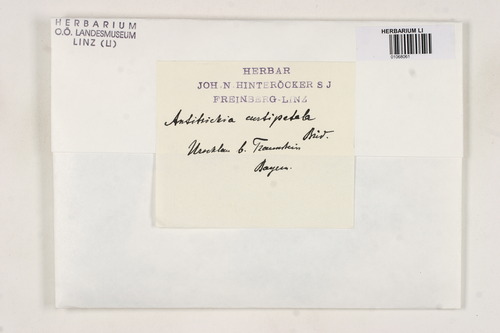 HERBARIUM
O.Ö. LANDESMUSEUM
LINZ (LI)
HERBARIUM LI
01068061
HERBAR
JOH. N. HINTERÖCKER S J
FREINBERG-LINZ
Antitrichia curtipetala
Brid.
Urschlau b. Traunstein
Bayern.